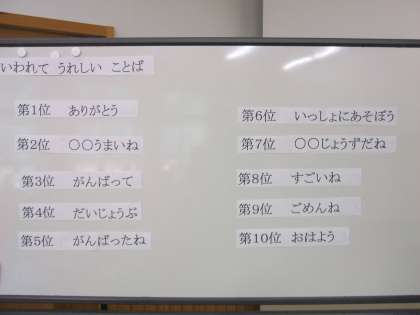 いわれて うれしい ことば
第1位 ありがとう
第2位 ○○うまいね
第3位 がんばって
第4位 だいじょうぶ
第5位 がんばったね
第6位 いっしょにあそぼう
第7位 ○○じょうずだね
第8位 すごいね
第9位 ごめんね
第10位 おはよう